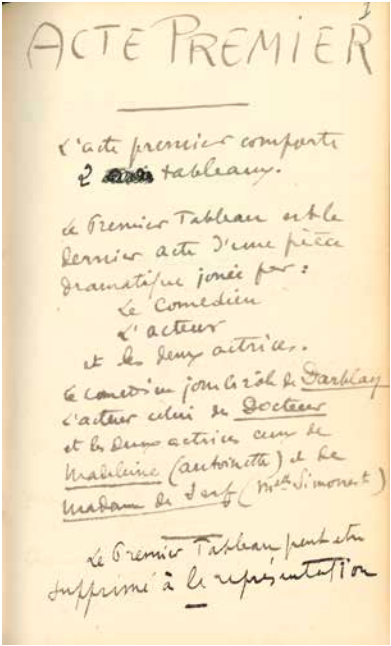 I
ACTE PREMIER
L'acte premier comporte
2 tableaux.
Le Premier Tableau est le
Dernier acte d'une pièce
dramatique jouée par :
Le Comédien
L'acteur
et les deux actrices.
Le comédien joue le rôle de Darblay
L'acteur celui du Docteur
et les deux actrices ceux de
Madeleine (Antoinette) et de
Madame de (Melle Simonest)
Le Premier Tableau peut etre
supprimé à la représentation